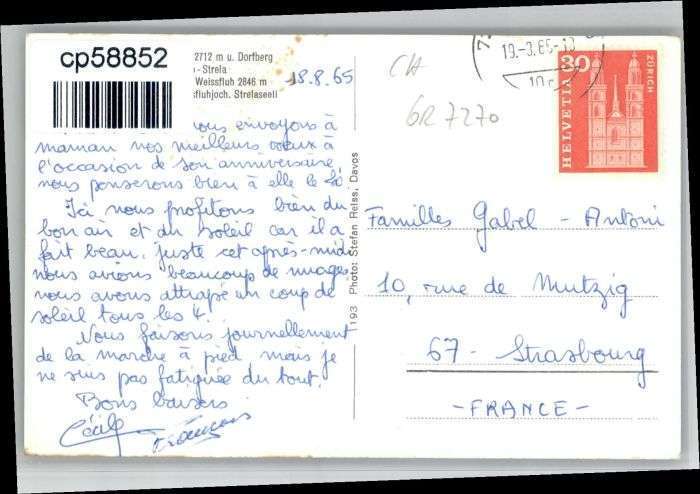 cp58852
2712 m u. Dorfberg
- Strela
Weissfluh 2846 m -
sfluhjoch. Strelaseeli
18.8.65
vous envoyons à
maman nos meilleurs voeux à
l'occasion de son anniversaire,
nous penserons bien à elle le
Ici nous profitons bien du
bon air et du soleil car il a
fait beau, juste cet après-midi
nous avions beaucoup de nuages,
nous avons attrapé un coup de
soleil tous les 4.
Nous faisons journellement
de la marche à pied mais je
ne suis pas fatiguée du tout.
Bons baisers
Cécile François
1193 Photo: Stefan Reiss, Davos
CH
GR 7270
HELVETIA 30 ZÜRICH
Familles Gabel - Antoni
10, rue de Mutzig
67 - Strasbourg
- FRANCE -